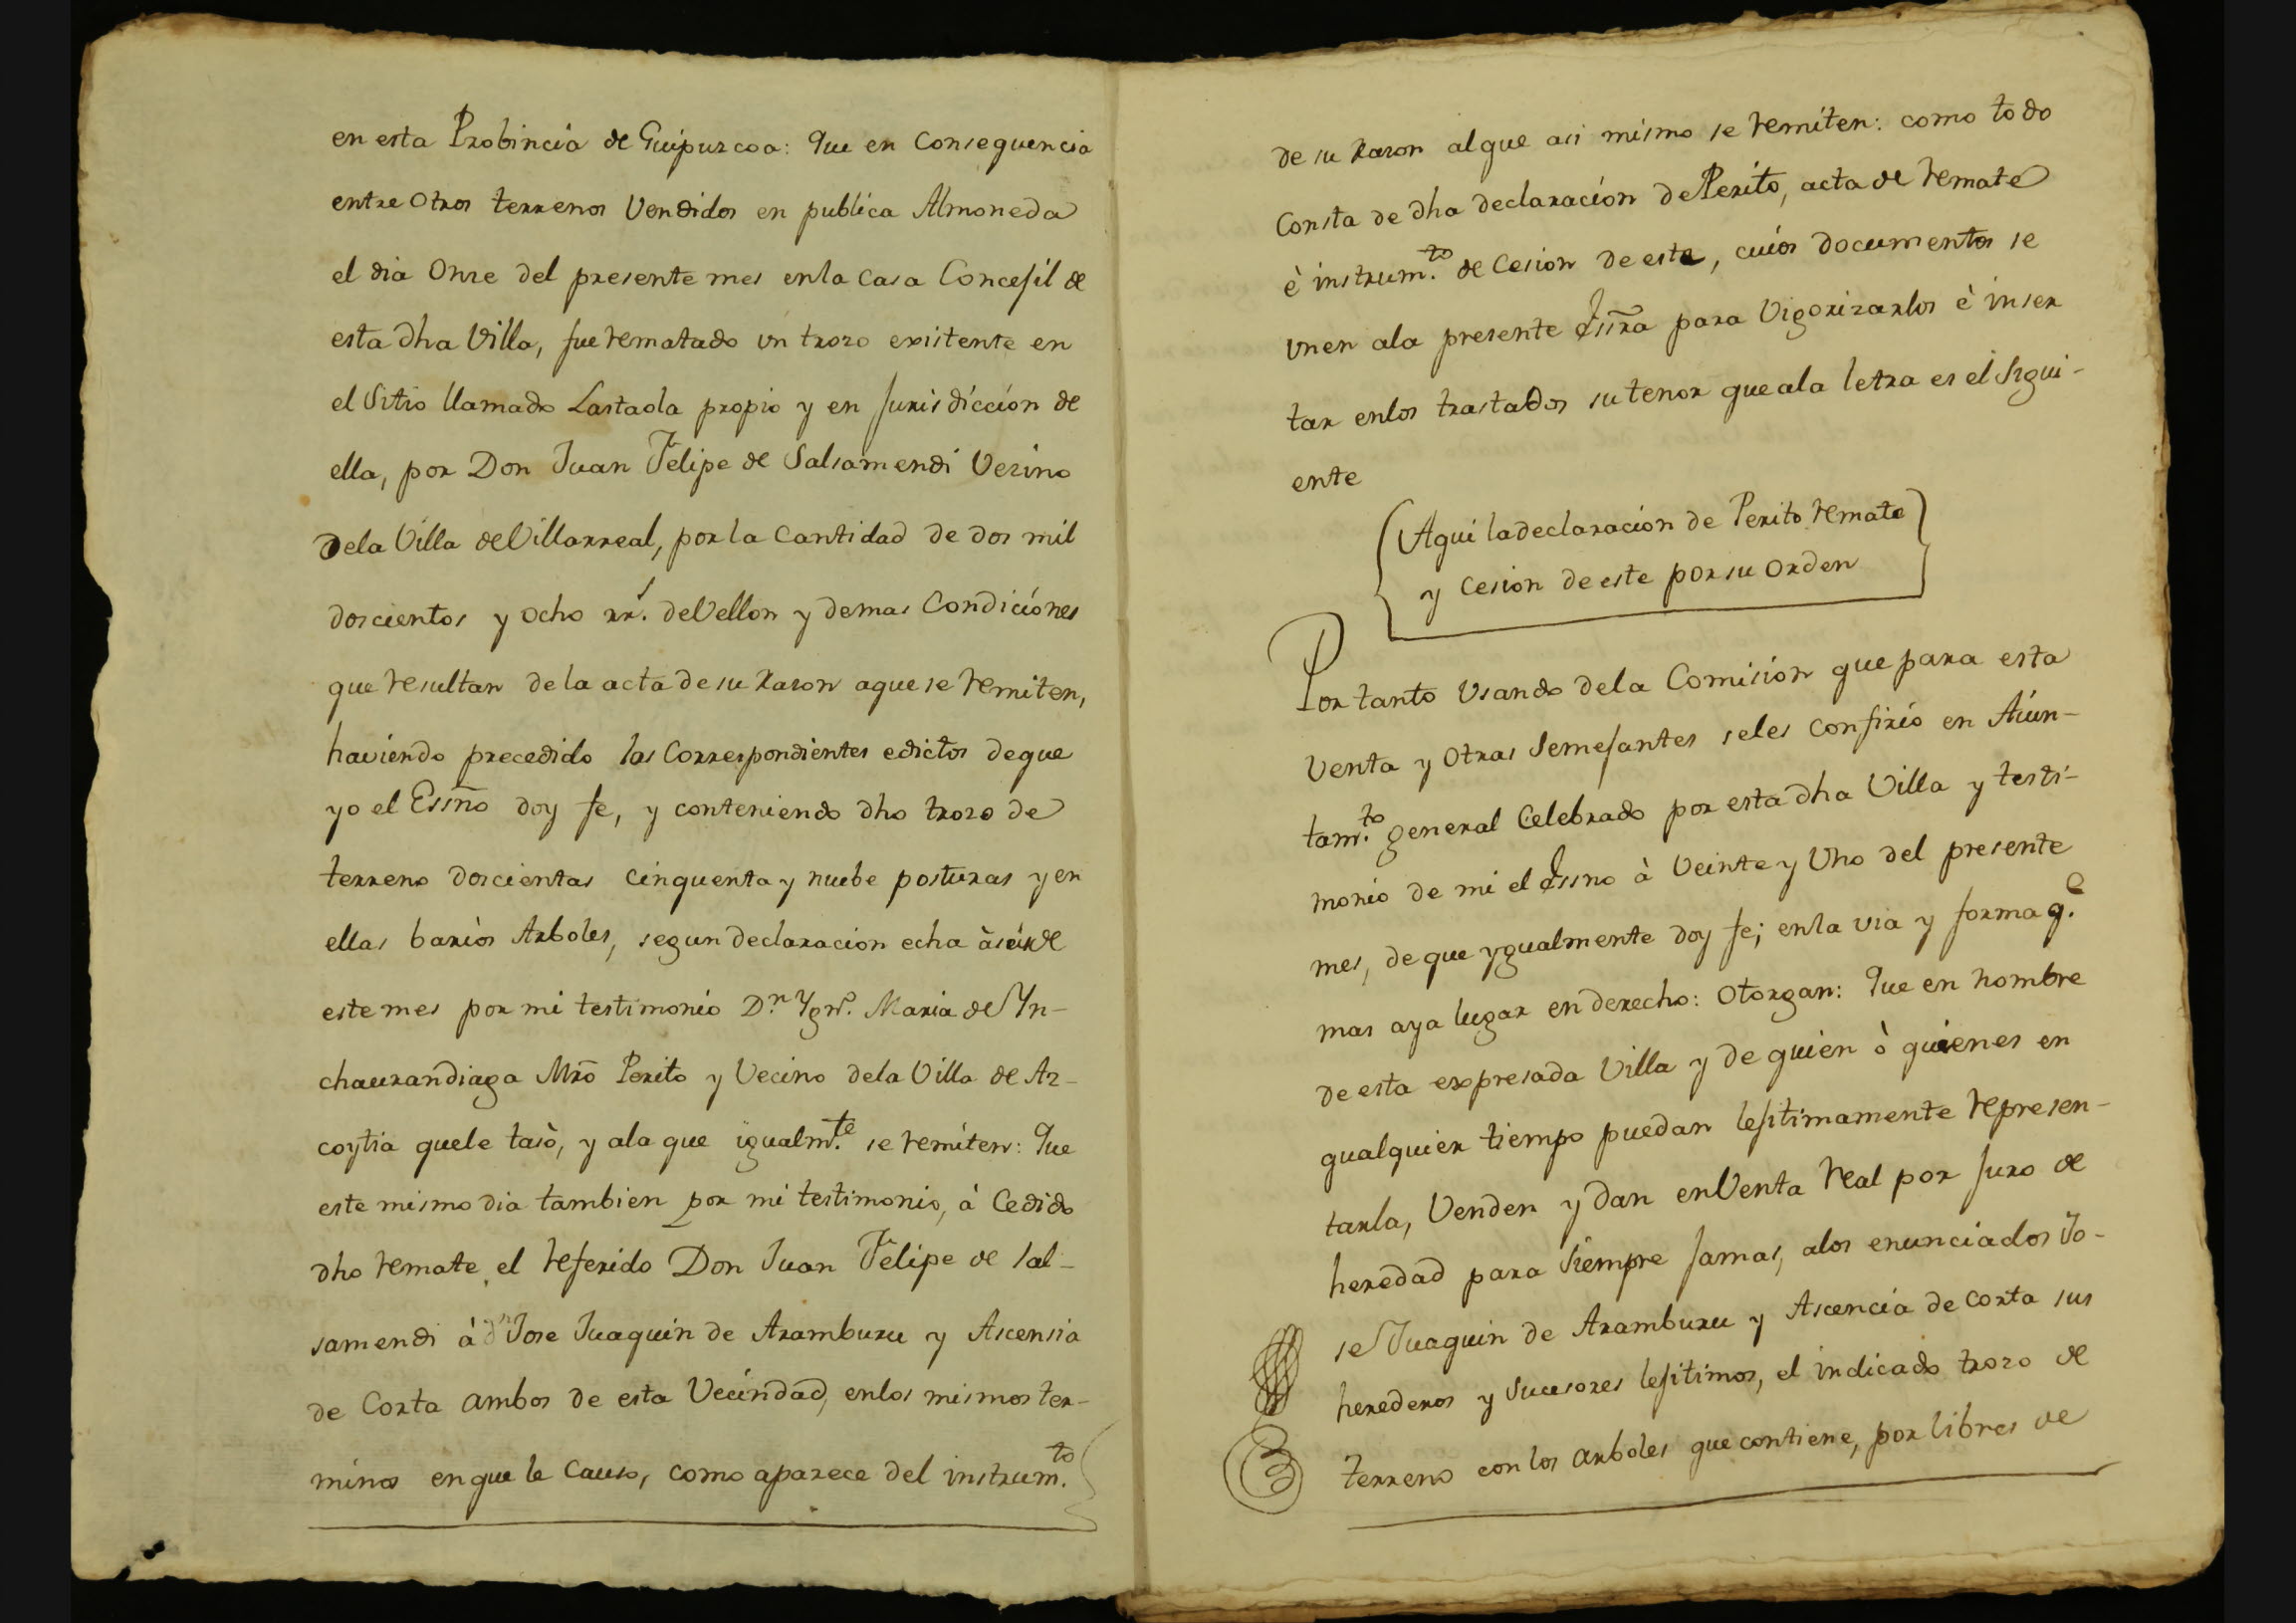 en esta Probincia de Guipuzcoa: Que en Consequencia
entre otros terrenos Vendidos en publica Almoneda
el dia Onze del presente mes en la Casa Concejil de
esta dha Villa, fue rematado un trozo existente en
el Sitio llamado Lastaola propio y en Jurisdiccion de
ella, por Don Juan Felipe de Salsamendi Vezino
de la Villa de Villarreal, por la Cantidad de dos mil
doscientos y ocho rr.s de Vellon y demas Condiciones
que resultan de la acta de su Razon a que se remiten,
haviendo precedido las Correspondientes edictos de que
yo el Essño doy fe, y conteniendo dho trozo de
terreno doscientas cinquenta y nuebe posturas y en
ellas barios Arboles, segun declaracion echa à seis de
este mes por mi testimonio D.n Ygn.o Maria de Yn-
chaurandiaga Mrõ Perito y Vecino de la Villa de Az-
coytia que le tasò, y a la que igualm.te se remiten: Que
este mismo dia tambien por mi testimonio, à Cedido
dho remate el referido Don Juan Felipe de Sal-
samendi à d.n Jose Juaquin de Aramburu y Ascensia
de Corta ambos de esta Vecindad, en los mismos ter-
minos en que le Causo, como aparece del instrum.to
de su Razon al que asi mismo se remiten: como todo
Consta de dha declaracion de Perito, acta de remate
è instrum.to de Cesion de este, cuios documentos se
unen a la presente Essrã para Vigorizarlos è inser
tar en los trastados su tenor que a la letra es el Sigui-
ente
Aqui la declaracion de Perito remate
y Cesion de este por su Orden
Por tanto Usando de la Comision que para esta
Venta y Otras Semejantes se les confirio en Aiun-
tam.to general Celebrado por esta dha Villa y testi-
monio de mi el Essno à Veinte y Uno del presente
mes, de que ygualmente doy fe; en la via y forma q.e
mas aya lugar en derecho: Otorgan: Que en nombre
de esta expresada Villa y de quien ò quienes en
qualquier tiempo puedan lejitimamente represen-
tarla, Venden y dan en Venta real por Juro de
heredad para Siempre Jamas, a los enunciados Jo-
se Juaquin de Aramburu y Ascencia de Corta sus
herederos y Sucesores lejitimos, el indicado trozo de
terreno con los arboles que contiene, por libres de